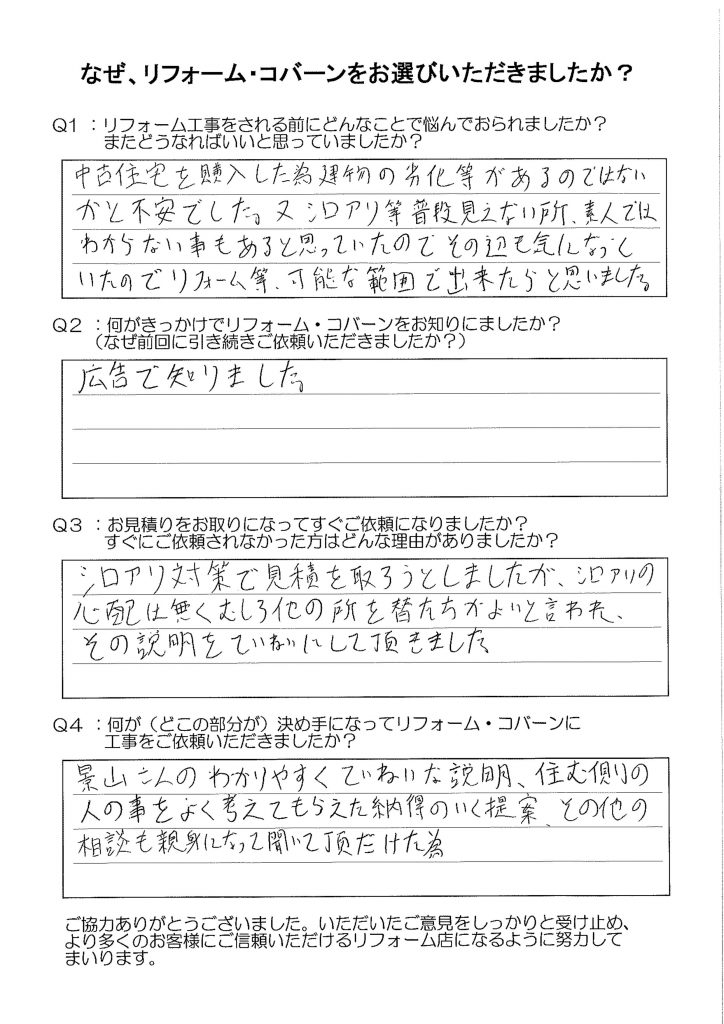 なぜ、リフォーム・コバーンをお選びいただきましたか？
Q1 ：リフォーム工事をされる前にどんなことで悩んでおられましたか？
またどうなればいいと思っていましたか？
中古住宅を購入した為建物の劣化等があるのではない
かと不安でした。又シロアリ等普段見えない所、素人では
わからない事もあると思っていたのでその辺も気になって
いたのでリフォーム等、可能な範囲で出来たらと思いました。
Q2 ：何がきっかけでリフォーム・コバーンをお知りにましたか？
（なぜ前回に引き続きご依頼いただきましたか？）
広告で知りました。
Q3 ：お見積りをお取りになってすぐご依頼になりましたか？
すぐにご依頼されなかった方はどんな理由がありましたか？
シロアリ対策で見積を取ろうとしましたが、シロアリの
心配は無くむしろ他の所を替たちがよいと言われ、
その説明をていねいにして頂きました
Q4 ：何が（どこの部分が）決め手になってリフォーム・コバーンに
工事をご依頼いただきましたか？
景山さんのわかりやすくていねいな説明、住む側の
人の事をよく考えてもらえた納得のいく提案、その他の
相談も親身になって聞いて頂だけた為
ご協力ありがとうございました。いただいたご意見をしっかりと受け止め、
より多くのお客様にご信頼いただけるリフォーム店になるように努力して
まいります。